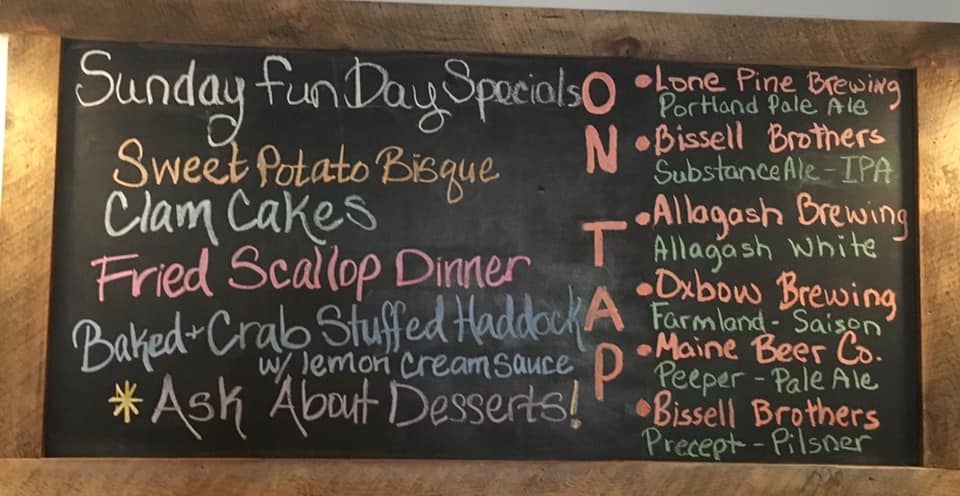 Sunday Fun Day Specials
Sweet Potato Bisque
Clam Cakes
Fried Scallop Dinner
Baked + Crab Stuffed Haddock
w/ lemon Cream Sauce
* Ask About Desserts!
ON TAP
• Lone Pine Brewing
Portland Pale Ale
• Bissell Brothers
Substance Ale - IPA
• Allagash Brewing
Allagash White
• Oxbow Brewing
Farmland - Saison
• Maine Beer Co.
Peeper - Pale Ale
• Bissell Brothers
Precept - Pilsner